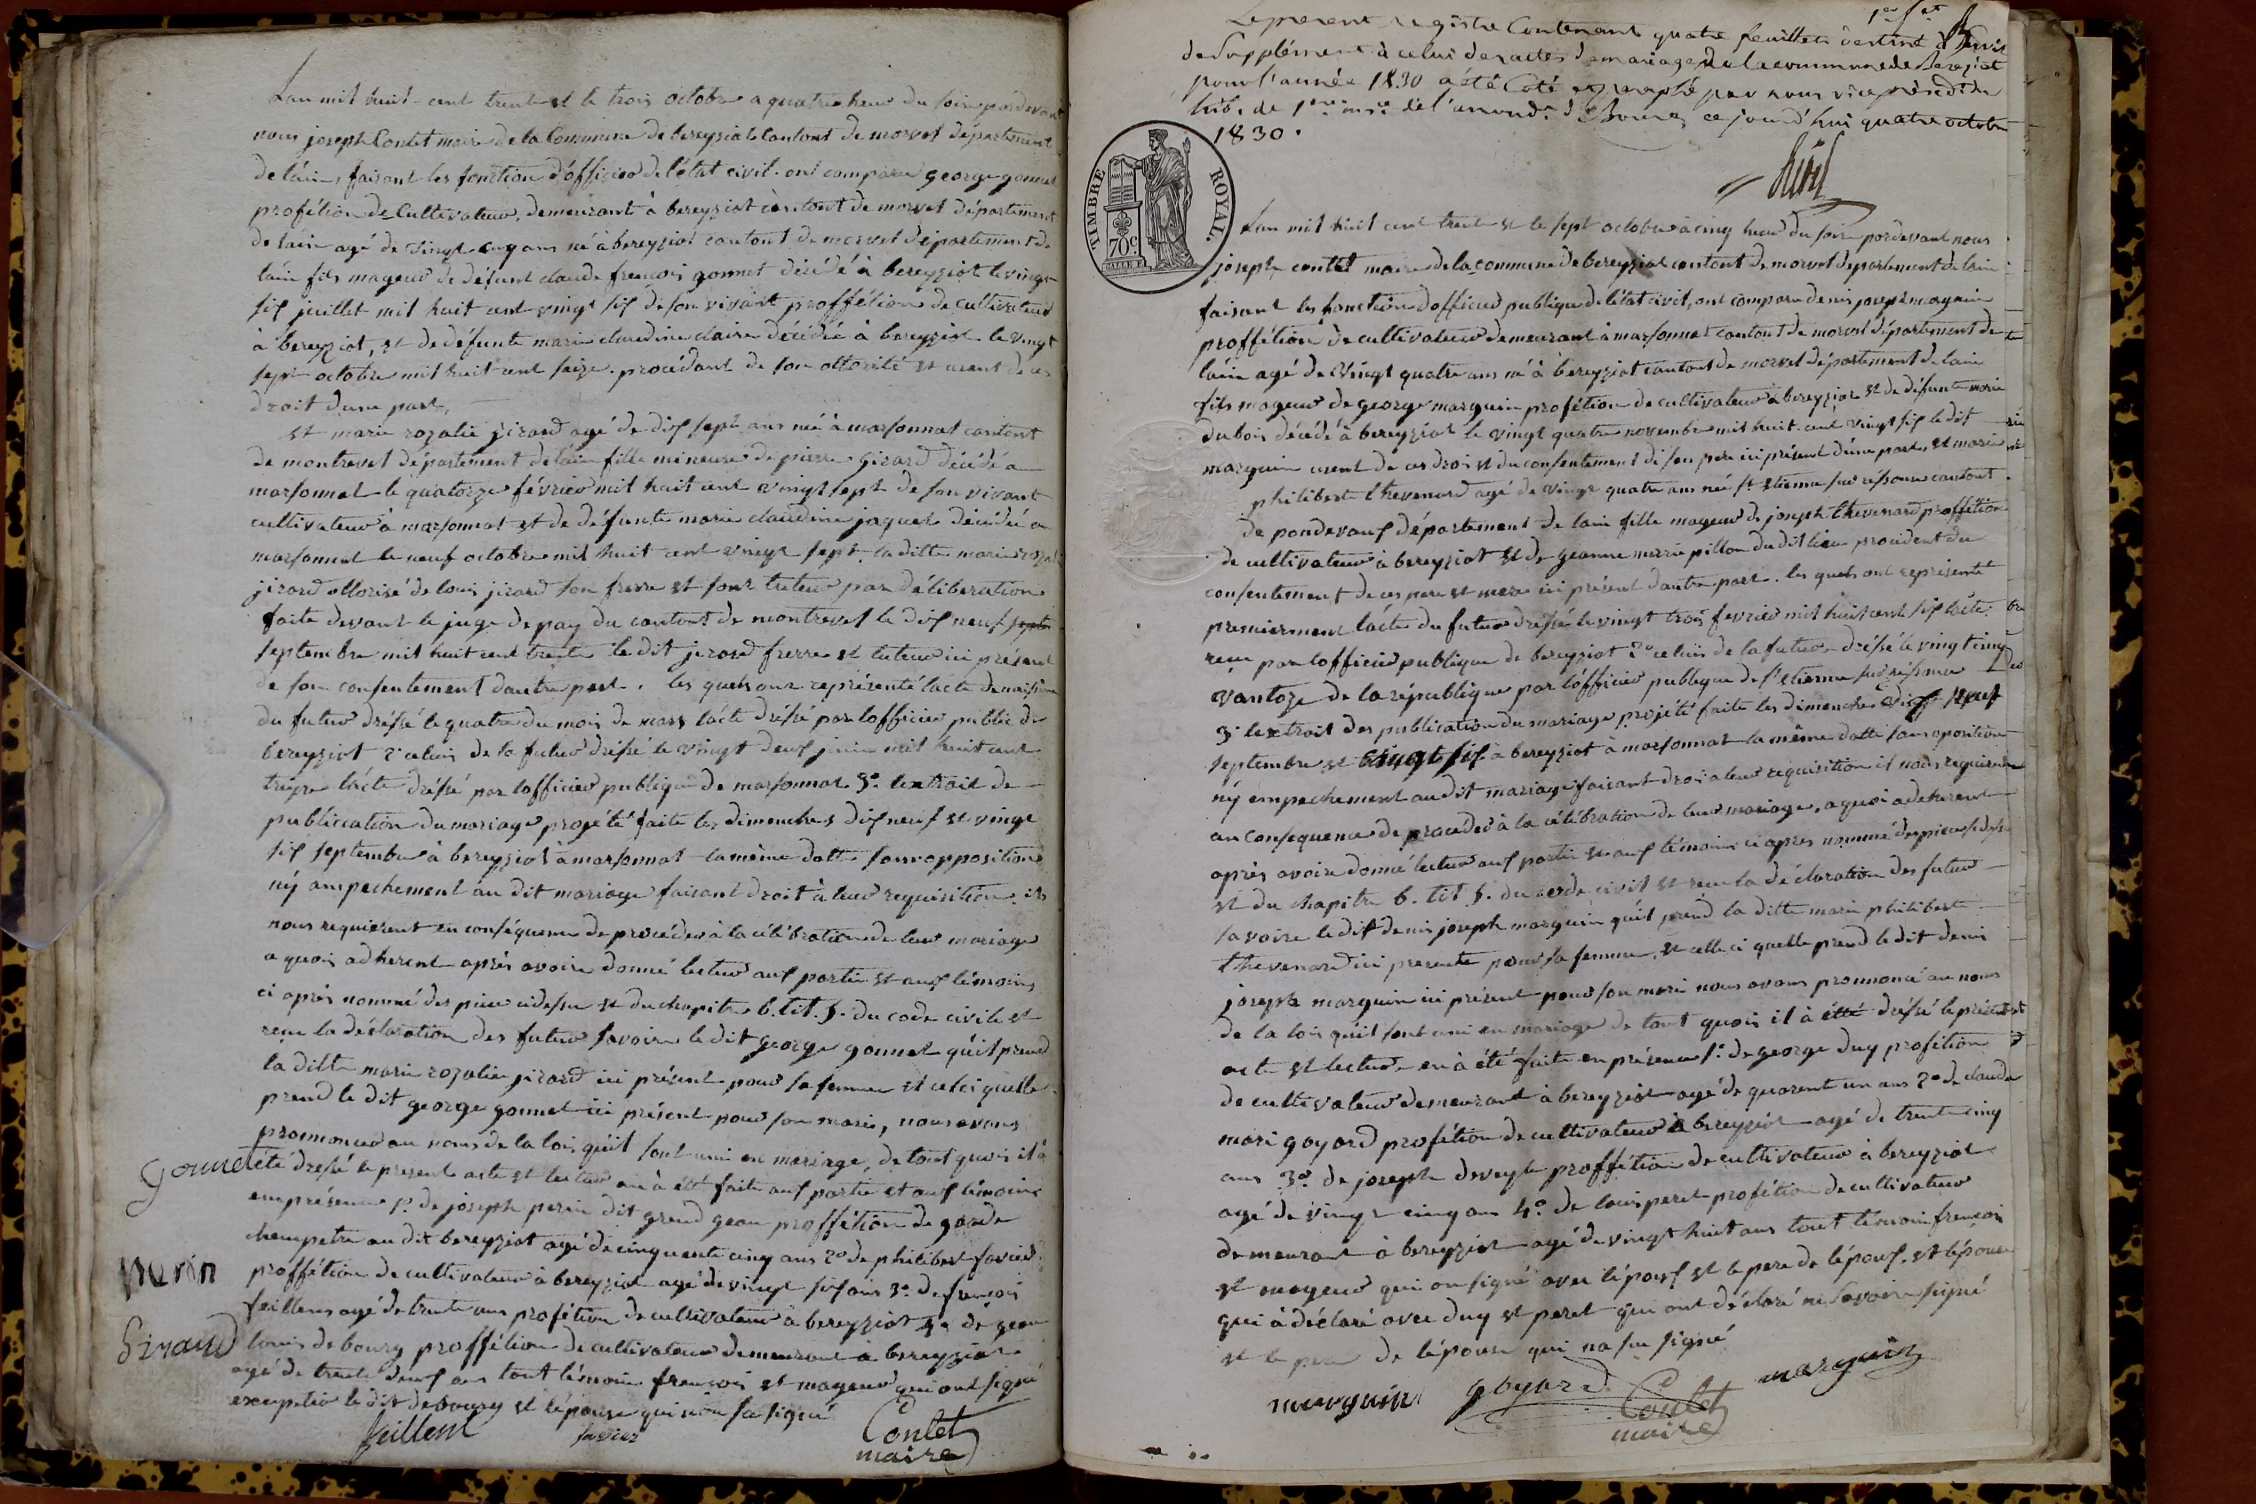 Lan mil huit-cent trente et le trois octobre a quatre heur du soir pardevant
nous joseph Contet maire de la Commune de bereyziat Cantont de morvel département
de láin, faisant les fonction d'officier de l'état civil. ont comparu george gonnet
profétion de Cultivateur, demeurant à bereyziat càntont de morvel département
de láin agé de vingt cinq ans né à bereyziat cantont de morvel département de
láin fils mageur de défunt claude francois gonnet décédé à bereyziat le vingt
six juillet mil huit cent vingt six de son vivant proffétion de cultivateur
à bereyziat, et de défunte marie claudine claire décédée à bereyziat le vingt
sept octobre mil huit cent seize. procédant de son ottorité et usent de ces
droit dune part,
et marie rozalie jirard agé de dix sept ans née à marsonnat cantont
de montrevel département de láin fille mineure de pierre girard décédé a
marsonnat le quatorze février mil huit cent vingt sept de son vivant
cultivateur à marsonnat et de défunte marie claudine jaquet décédée a
marsonnat le neuf octobre mil huit cent vingt sept. la ditte marie rozalie
jirard ottorisé de louis jirard son frerre et sont tuteur par déliberation
faite devant le juge de pay du cantont de montrevel le dix neuf septe
septembre mil huit cent trente le dit jirard frerre et tuteur ici présent
de son consentement dautre part. les quels ont représenté lacte de naissance
du futur dréssé le quatre du mois de mars lácte dréssé par lofficier public de
bereyziat 2º celuis de la futur dréssé le vingt deux juin mil huit cent
treize lácte dréssé par lofficier publique de marsonnat. 3º. lextrait de
publiccation du mariage projété faite les dimenches dix neuf et vingt
six septembre à bereyziat à marsonnat la même datte sans opposition
ný ampechement au dit mariage faisant droit à leur requisition. ils
nous requierent en conséquence de proceder à la célébration de leur mariage
a quois adherent après avoire donné lectur aux partie et aux témoins
ci après nommé des piece cidessu et du chapitre 6. tit. 5. du code civile et
reçu la déclaration des futur savoire le dit george gonnet qúil prend
la ditte marie rozalie jirard ici présent pour sa femme et celci quelle
prend le dit george gonnet ici présent pour son marie, nous avons
pronnoncer au noms de la lois qúil sont uni en mariage, de tout quois il à
été dréssé le present acte et lectur en à été faite aux partie et aux témoins
en présence 1º. de joseph perin dit grand jean proffétion de garde
champetre au dit bereyziat agé de cinquente cinq ans 2º de philibert favier
proffétion de cultivateur à bereyziat agé de vingt six ans 3º. de francois
feillens agé de trente ans profétion de cultivateur à bereyziat 4º de jean
louis de boury proffétion de cultivateur demeurant à bereyziat
agé de trente deux ans tout témoins françois et mageur qui ont signé
exceptée le dit deboury et lépouse qui non su signé
Gonnet
Perin
Giraud
feillens
favier
Contet
maire
1er f.et
Le present registre Contenant quatre feuillets destiné à servir
de Supplément à celui des actes de mariage de la commune de Bereziat
pour l'année 1830 a été Coté et paraphé par nous vice président du
trib. de 1ere insce de l'arrondt de Bourg ce jourd'hui quatre octobre
1830.
TIMBRE ROYAL.
70c
Lan mil huit cent trente et le sept octobre à cinq heur du soir pardevant nous
joseph contet maire de la commune de bereyziat cantont de morvel département de láin
faisant les fonction dofficier publique de létat civil, ont comparu denis joseph marguin
proffétion de cultivateur demeurant à marsonnat cantont de morvel département de
láin agé de vingt quatre ans né à bereyziat cantont de morvel département de láin
fils mageur de george marguin profétion de cultivateur à bereyziat et de défunte marie
dubois décédé à bereyziat le vingt quatre novembre mil huit cent vingt six le dit
marguin usent de ces droi et du consentement de son pere ici présent dúne part, et marie
philiberte thevenard agé de vingt quatre ans née st. etienne sur ressouse cantont
de pondevaux département de láin fille mageur de joseph thevenard proffétion
de cultivateur à bereyziat et de jeanne marie pillon du dit lieu procédent du
consentement de ces pere et mere ici présent dautre part. les quels ont représenté
premierment lácte du futur dréssé le vingt trois fevrier mil huit cent six lácte
reçu par lofficier publique de bereyziat 2º celuis de la futur dréssé le vingt cinq
vantoze de la république par lofficier publique de st etienne sur ressouse
3º. lextrait des publication du mariage projété faite les dimenches dix neuf
septembre et vingt six à bereyziat a marsonnat la même datte sans oposition
ný empechement au dit mariage faisant droi a leur requisition il nous requierent
an consequence de proceder à la célébration de leur mariage, a quoi adeherent
après avoire donné lectur aux partie et aux témoins ci apres nommé des piece cidessu
et du chapitre 6. tit 5. du code civil et reçu la déclaration des futur
savoire le dit denis joseph marguin qúil prend la ditte marie philibert
thevenard ici presente pour sa femme, et celle ci quelle prend le dit denis
joseph marguin ici présent pour son mari nous avons pronnoncé au noms
de la lois qúil sont uni en mariage de tout quois il à été dréssé le présent
acte et lectur en à été faite en présence 1º. de george duy profétion
de cultivateur demeurant à bereyziat agé de quarent un ans 2º de claude
mari goyard profétion de cultivateur à bereyziat agé de trente cinq
ans 3º. de joseph deveyle proffétion de cultivateur à bereyziat
agé de vingt cinq ans 4º. de louis peret profétion de cultivateur
demeurant à bereyziat agé de vingt huit ans tout témoin françois
et mageur qui on signé avec lépoux et le pere de lépoux. et lépouse
qui à déclaré avec duy et peret qui ont déclaré ne savoire signé
et le pere de lépouse qui na su signé
marguin goyard Contet marguin
maire